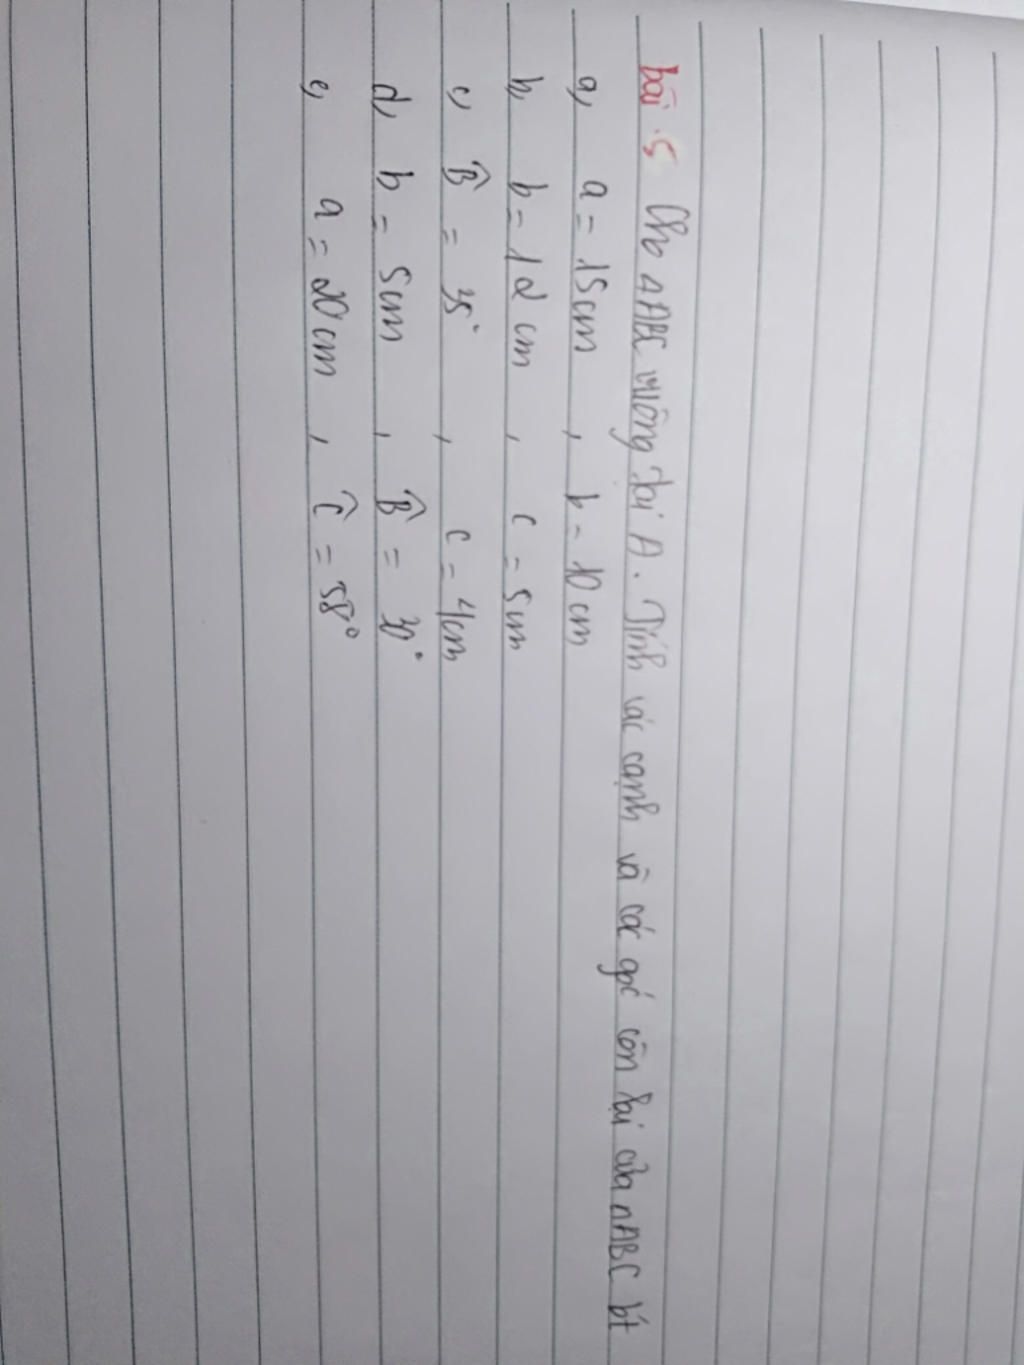 bài 5 Cho ΔABC vuông tại A. Tính các cạnh và các góc còn lại của ΔABC bt
a, a = 15cm , b = 10cm
b, b = 12cm , c = 5cm
c, B̂ = 35° , c = 4cm
d, b = 5cm , B̂ = 30°
e, a = 20cm , Ĉ = 58°